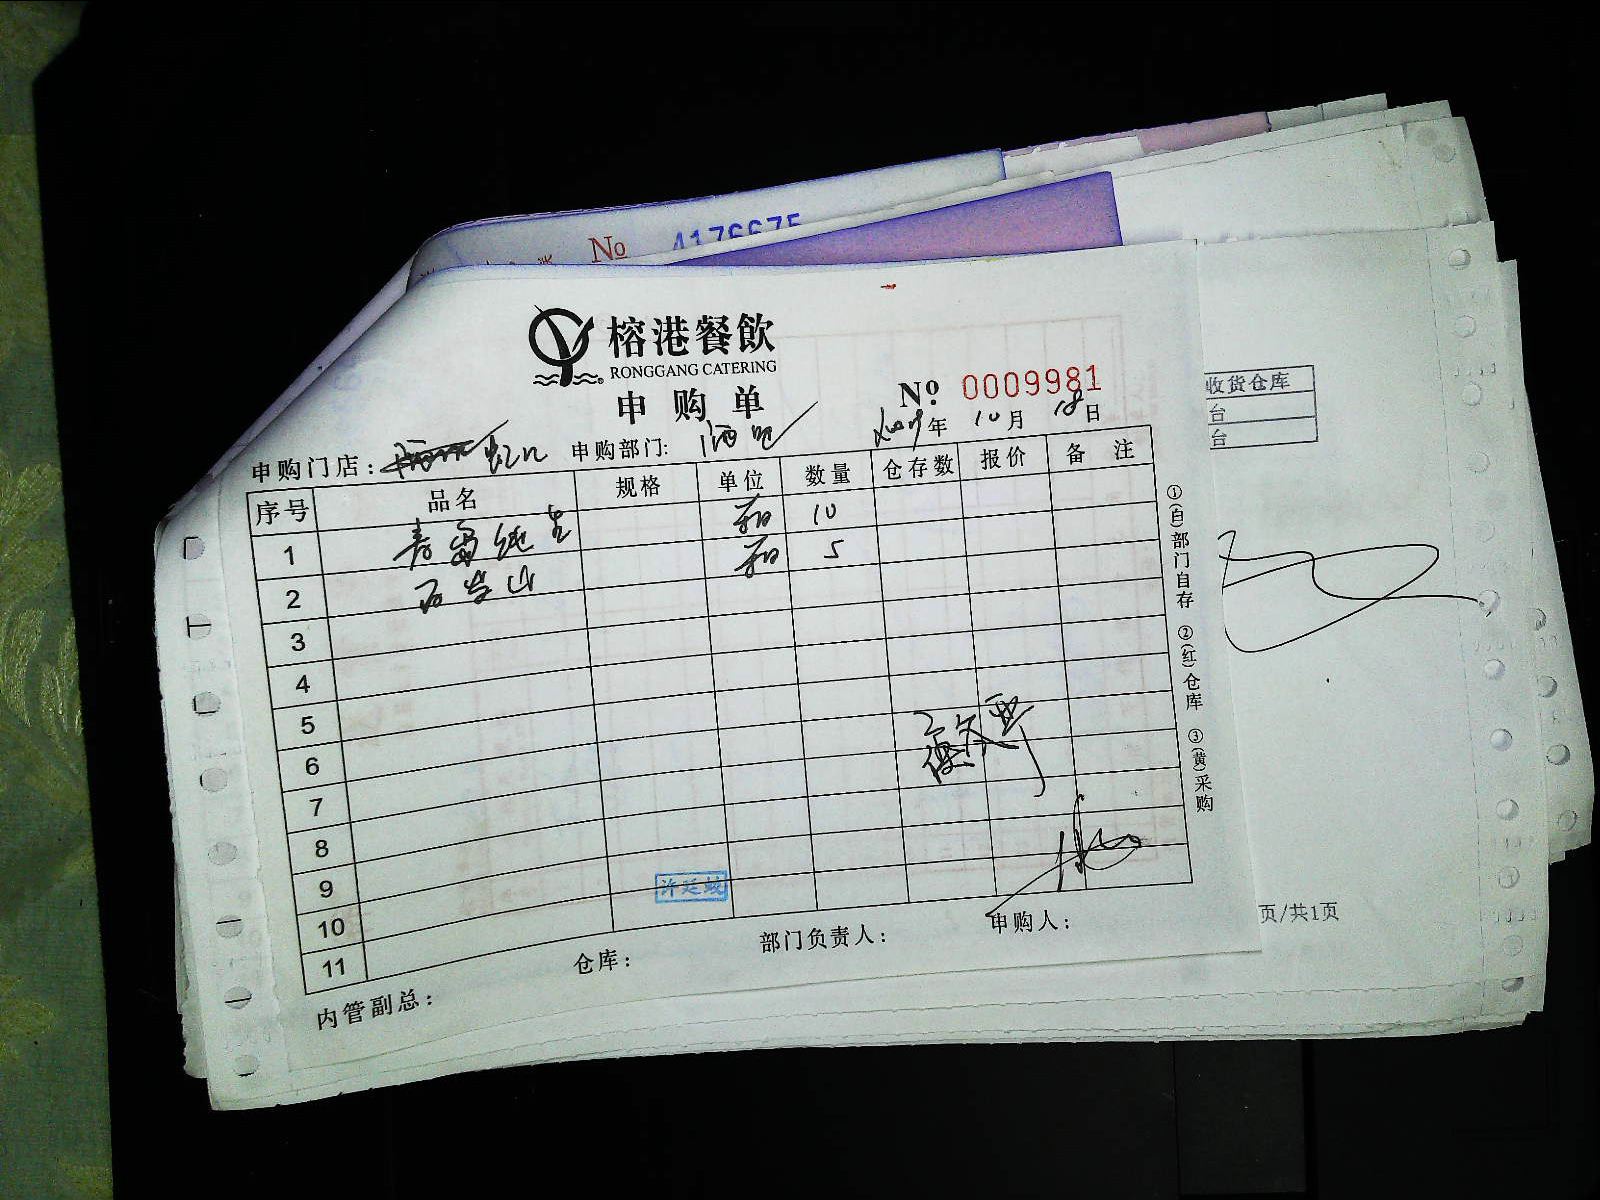 No 4176675
榕港餐飲
RONGGANG CATERING
申购单
No. 0009981
申购门店: 虹口 申购部门: 酒吧 2009年 10月 18日
序号 品名 规格 单位 数量 仓存数 报价 备注
1 青岛纯生 箱 10
2 石岩山 箱 5
3
4
5
6
7
8
9
10
11
内管副总: 仓库: 部门负责人: 申购人:
①(白)部门自存 ②(红)仓库 ③(黄)采购
收货仓库
台
台
页/共1页